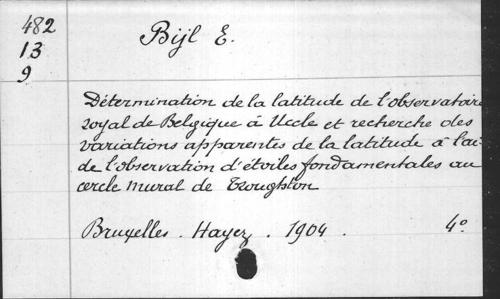 482
13
9
Bijl E.
Détermination de la latitude de l'observatoire
royal de Belgique à Uccle et recherche des
variations apparentes de la latitude à l'ai-
de l'observation d'étoiles fondamentales au
cercle mural de Troughton
Bruxelles . Hayez . 1904 . 4°